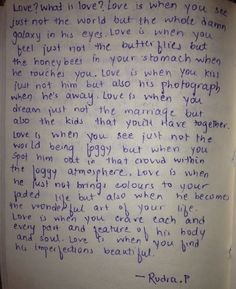 Love? What is love? Love is when you see
just not the world but the whole damn
galaxy in his eyes. Love is when you
feel just not the butterflies but
the honeybees in your stomach when
he touches you. Love is when you kiss
just not him but also his photograph
when he's away. Love is when you
dream just not the marriage but
also the kids that you'll have together.
Love is when you see just not the
world being foggy but when you
spot him out in that crowd within
the foggy atmosphere. Love is when
he just not brings colours to your
faded life but also when he becomes
the wonderful art of your life.
Love is when you crave each and
every part and feature of his body
and soul. Love is when you find
his imperfections beautiful.
— Rudra.P